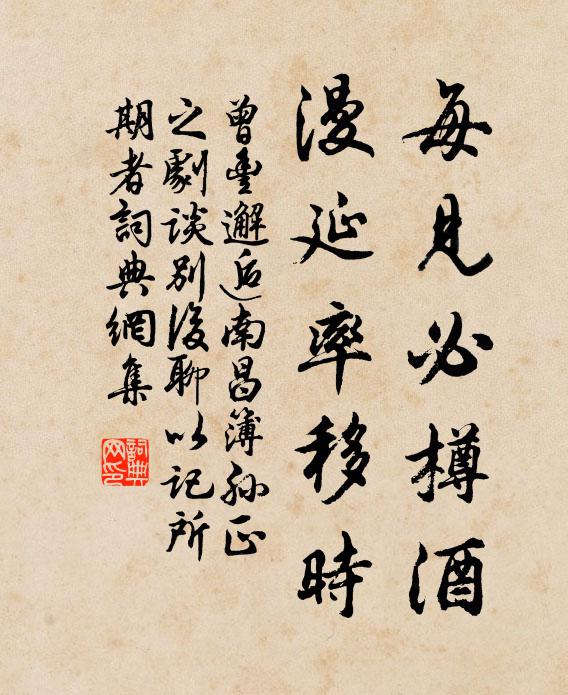 每見必樽酒
漫延率移時
曾豐邂逅南昌簿孫正
之劇談別後聊以記所
期者詞典網集
詞典
网印